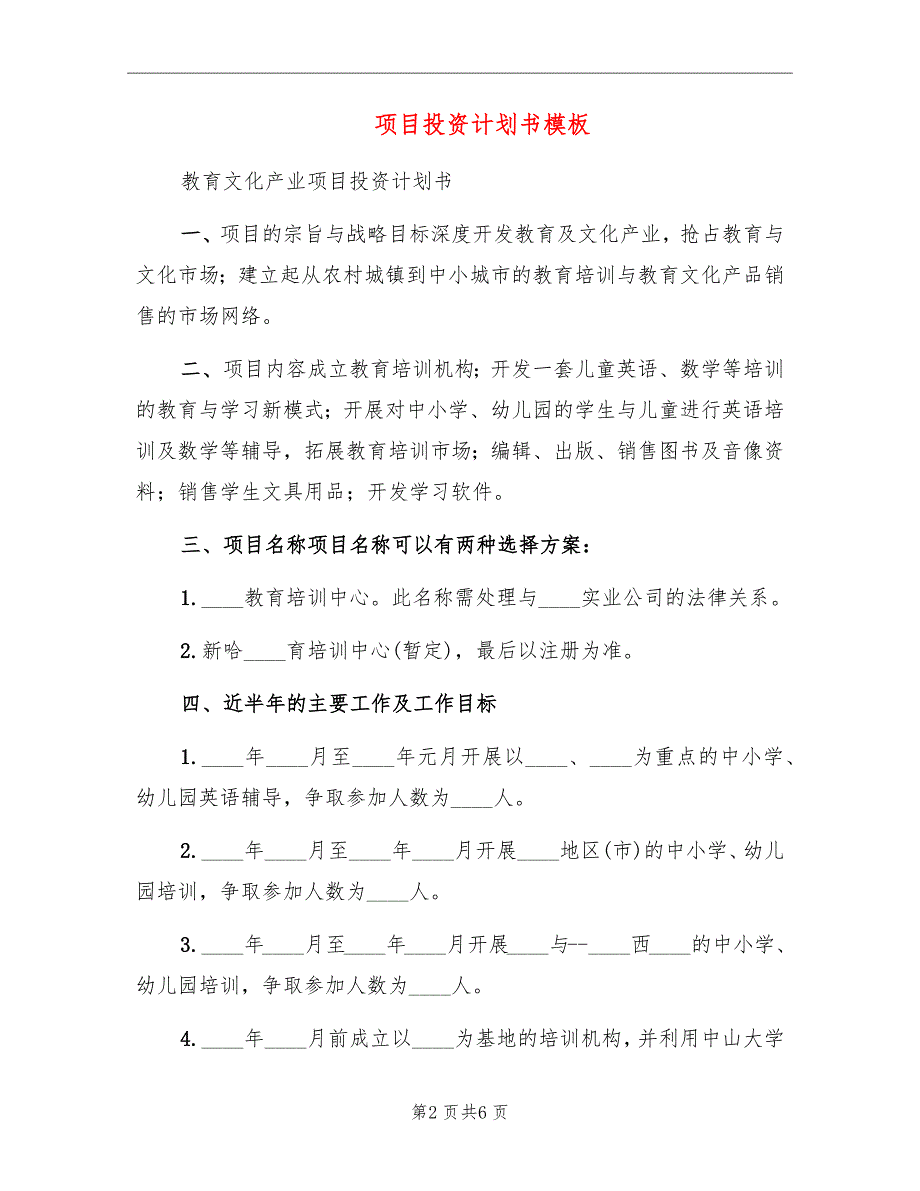 项目投资计划书模板
教育文化产业项目投资计划书
一、项目的宗旨与战略目标深度开发教育及文化产业，抢占教育与
文化市场；建立起从农村城镇到中小城市的教育培训与教育文化产品销
售的市场网络。
二、项目内容成立教育培训机构；开发一套儿童英语、数学等培训
的教育与学习新模式；开展对中小学、幼儿园的学生与儿童进行英语培
训及数学等辅导，拓展教育培训市场；编辑、出版、销售图书及音像资
料；销售学生文具用品；开发学习软件。
三、项目名称项目名称可以有两种选择方案：
1.____教育培训中心。此名称需处理与____实业公司的法律关系。
2.新哈____育培训中心(暂定)，最后以注册为准。
四、近半年的主要工作及工作目标
1.____年____月至____年元月开展以____、____为重点的中小学、
幼儿园英语辅导，争取参加人数为____人。
2.____年____月至____年____月开展____地区(市)的中小学、幼儿
园培训，争取参加人数为____人。
3.____年____月至____年____月开展____与--____西____的中小学、
幼儿园培训，争取参加人数为____人。
4.____年____月前成立以____为基地的培训机构，并利用中山大学
第2 页共6 页